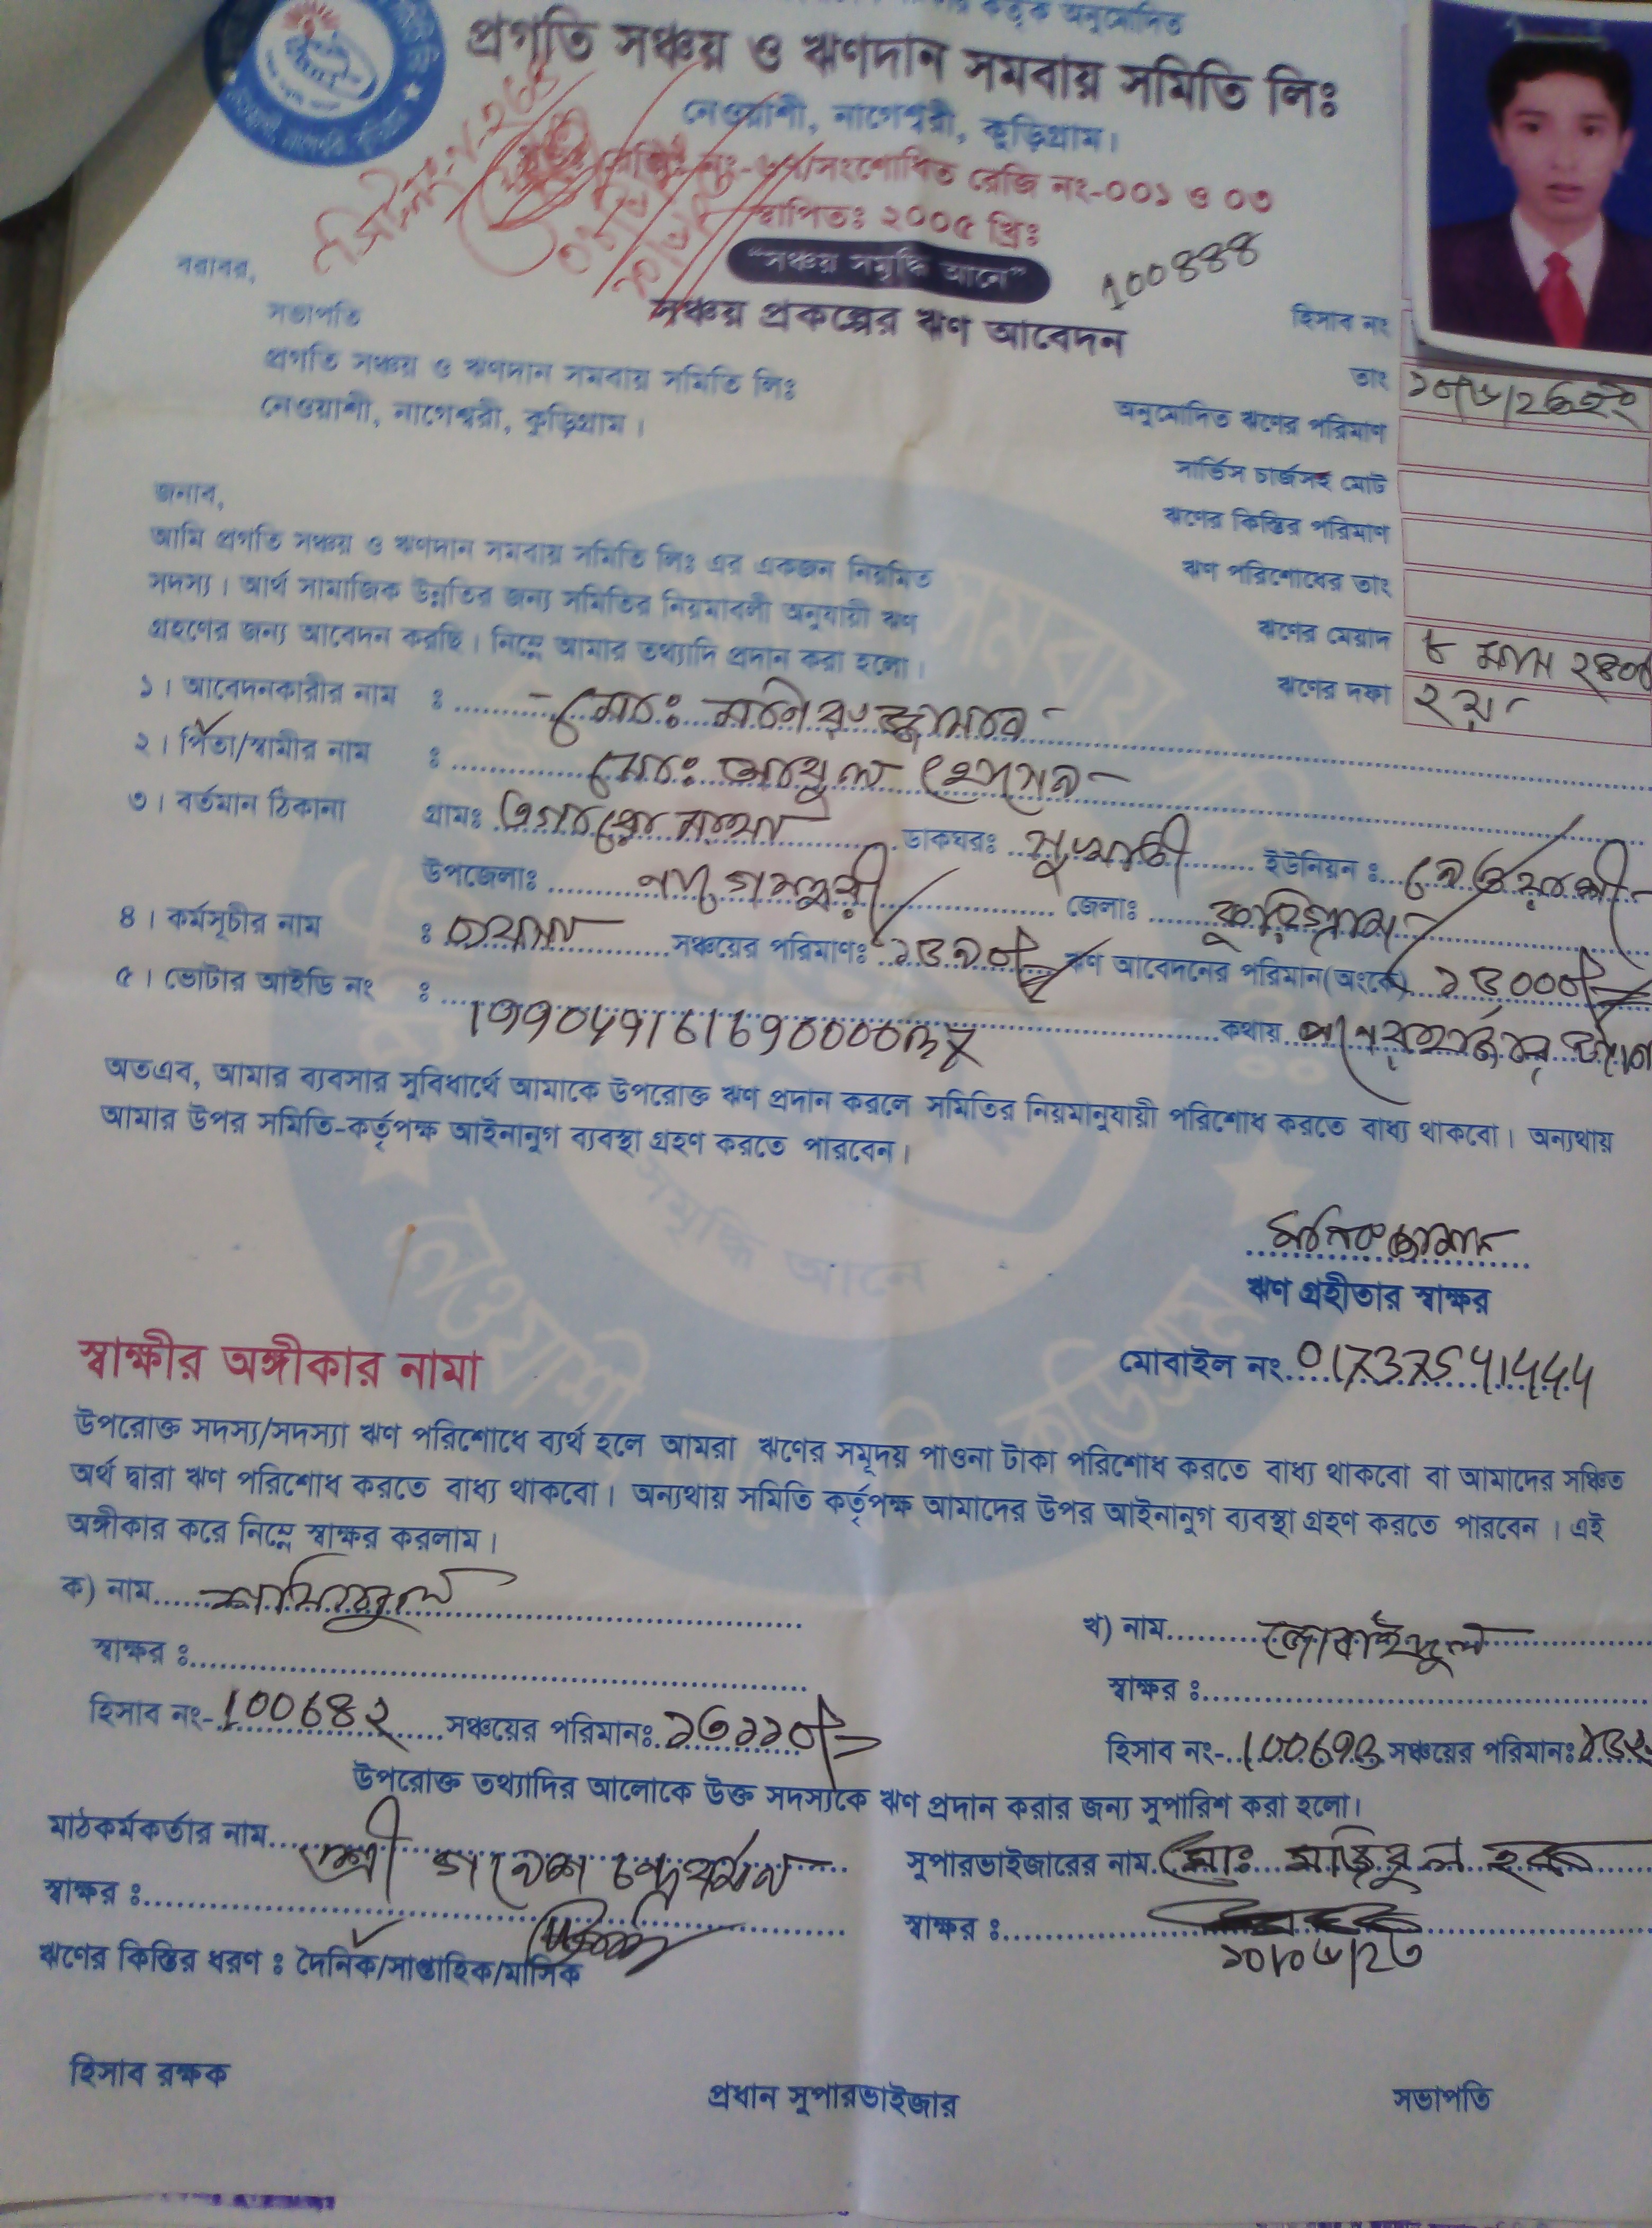 কর্তৃক অনুমোদিত
প্রগতি সঞ্চয় ও ঋণদান সমবায় সমিতি লিঃ
নেওয়াশী, নাগেশ্বরী, কুড়িগ্রাম।
নং-৬৭/সংশোধিত রেজি নং-০০১ ও ০৩
স্থাপিতঃ ২০০৫ খ্রিঃ
"সঞ্চয় সমৃদ্ধি আনে"
100888
সঞ্চয় প্রকল্পের ঋণ আবেদন
বরাবর,
সভাপতি
প্রগতি সঞ্চয় ও ঋণদান সমবায় সমিতি লিঃ
নেওয়াশী, নাগেশ্বরী, কুড়িগ্রাম।
হিসাব নং
তাং
অনুমোদিত ঋণের পরিমাণ
সার্ভিস চার্জসহ মোট
ঋণের কিস্তির পরিমাণ
ঋণ পরিশোধের তাং
ঋণের মেয়াদ ৮ মাস ২৪০
ঋণের দফা ২য়
জনাব,
আমি প্রগতি সঞ্চয় ও ঋণদান সমবায় সমিতি লিঃ এর একজন নিয়মিত
সদস্য। আর্থ সামাজিক উন্নতির জন্য সমিতির নিয়মাবলী অনুযায়ী ঋণ
গ্রহণের জন্য আবেদন করছি। নিম্নে আমার তথ্যাদি প্রদান করা হলো।
১। আবেদনকারীর নাম : মোঃ মনিরুজ্জামান
২। পিতা/স্বামীর নাম : মোঃ আবুল হোসেন
৩। বর্তমান ঠিকানা গ্রামঃ ডাকঘরঃ সুখাতী ইউনিয়ন : নেওয়াশী
উপজেলাঃ নাগেশ্বরী জেলাঃ কুড়িগ্রাম
৪। কর্মসূচীর নাম : সঞ্চয়ের পরিমাণঃ ১৫৯০/= ঋণ আবেদনের পরিমান(অংকে) ১৫০০০/=
৫। ভোটার আইডি নং : কথায় পনের হাজার টাকা
অতএব, আমার ব্যবসার সুবিধার্থে আমাকে উপরোক্ত ঋণ প্রদান করলে সমিতির নিয়মানুযায়ী পরিশোধ করতে বাধ্য থাকবো। অন্যথায়
আমার উপর সমিতি-কর্তৃপক্ষ আইনানুগ ব্যবস্থা গ্রহণ করতে পারবেন।
মনিরুজ্জামান
ঋণ গ্রহীতার স্বাক্ষর
মোবাইল নং 01737541444
স্বাক্ষীর অঙ্গীকার নামা
উপরোক্ত সদস্য/সদস্যা ঋণ পরিশোধে ব্যর্থ হলে আমরা ঋণের সমূদয় পাওনা টাকা পরিশোধ করতে বাধ্য থাকবো বা আমাদের সঞ্চিত
অর্থ দ্বারা ঋণ পরিশোধ করতে বাধ্য থাকবো। অন্যথায় সমিতি কর্তৃপক্ষ আমাদের উপর আইনানুগ ব্যবস্থা গ্রহণ করতে পারবেন। এই
অঙ্গীকার করে নিম্নে স্বাক্ষর করলাম।
ক) নাম
খ) নাম জোবাইদুল
স্বাক্ষর :
স্বাক্ষর :
হিসাব নং- 100682 সঞ্চয়ের পরিমানঃ ১৬১১০/=
হিসাব নং- 100693 সঞ্চয়ের পরিমানঃ
উপরোক্ত তথ্যাদির আলোকে উক্ত সদস্যকে ঋণ প্রদান করার জন্য সুপারিশ করা হলো।
মাঠকর্মকর্তার নাম শ্রী গনেশ চন্দ্র বর্মন
সুপারভাইজারের নাম মোঃ মজিবুল হক
স্বাক্ষর :
স্বাক্ষর :
ঋণের কিস্তির ধরণ : দৈনিক/সাপ্তাহিক/মাসিক
হিসাব রক্ষক
প্রধান সুপারভাইজার
সভাপতি